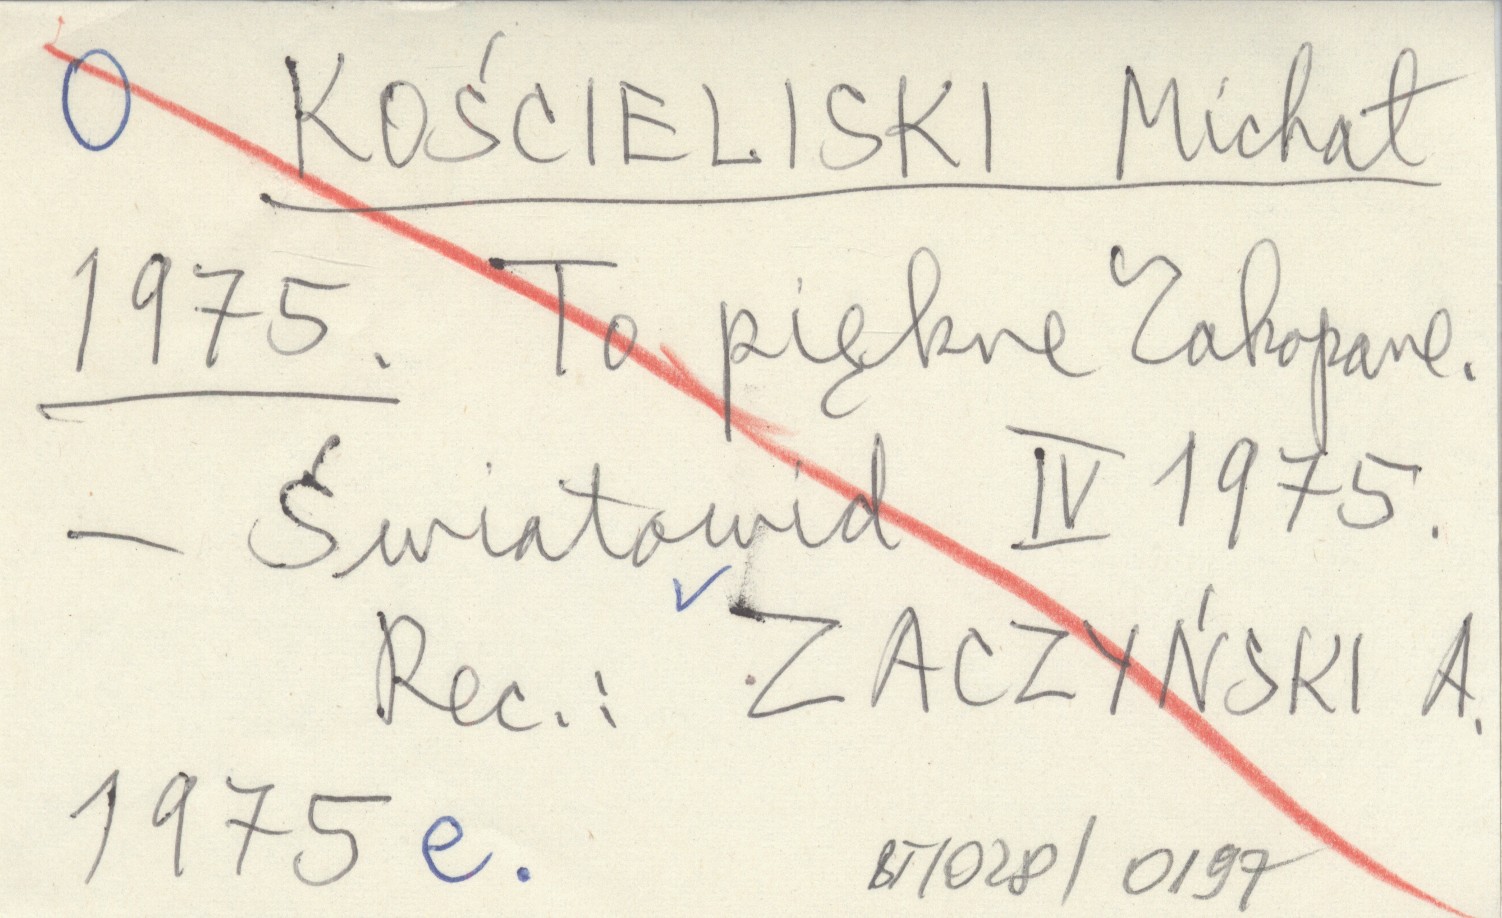 O KOŚCIELISKI Michał
1975. To piękne Zakopane.
– Światowid IV 1975.
Rec.: ZACZYŃSKI A.
1975 e.
BT/028/0197